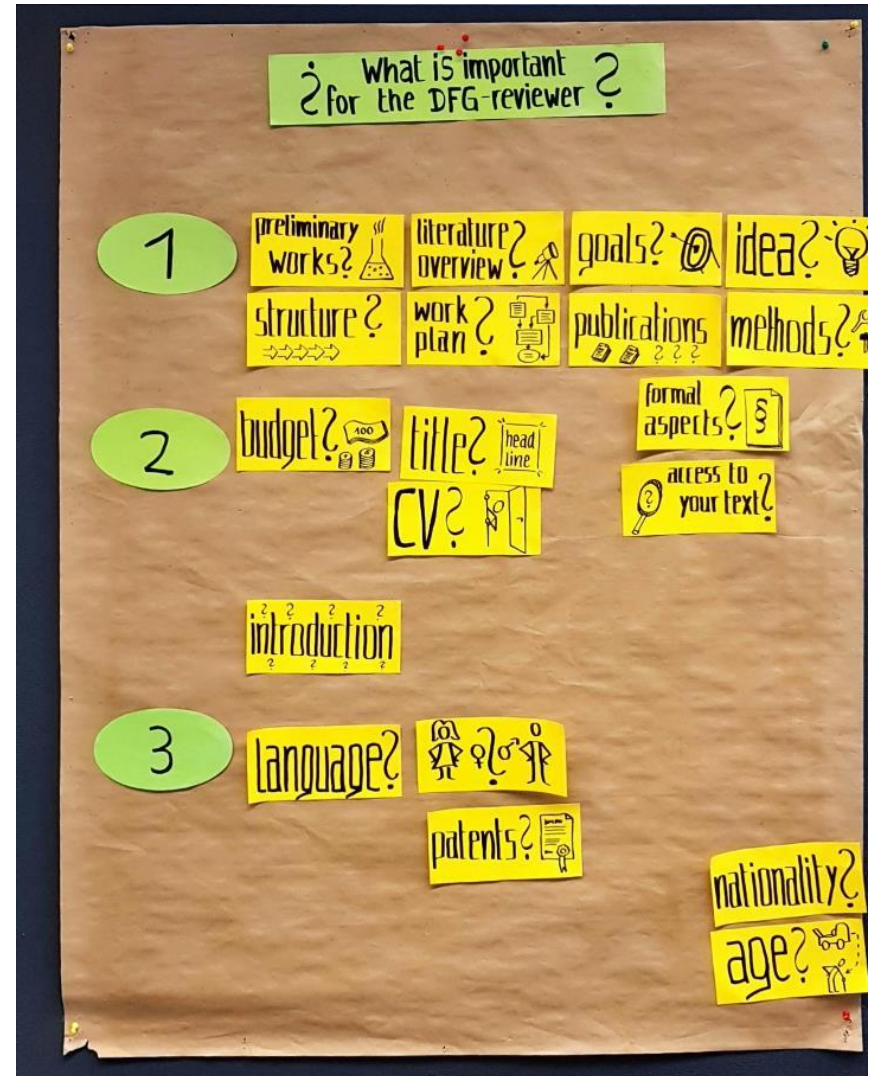 ¿ What is important ?
for the DFG-reviewer
1
preliminary
works?
literature
overview?
goals?
idea?
structure?
work
plan?
publications
? ? ?
methods?
2
budget?
100
title?
head
line
formal
aspects?
§
CV?
access to
your text?
?
? ? ? ?
introduction
? ? ? ?
3
language?
♀?♂
patents?
nationality?
age?